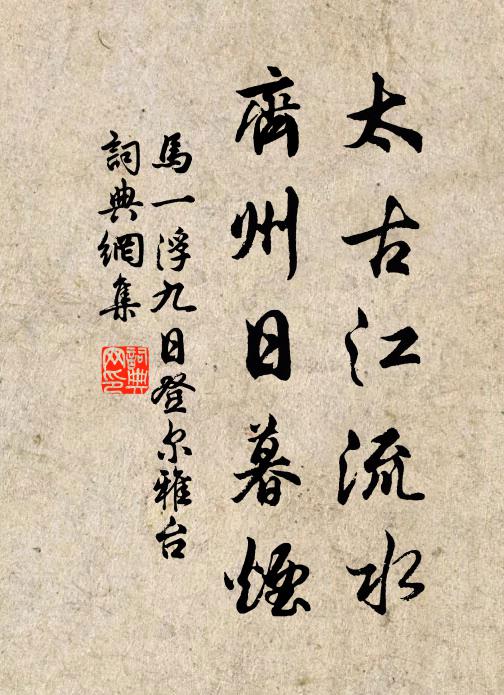 太古江流水
齊州日暮煙
馬一浮九日登尔雅台
詞典網集
詞典網印